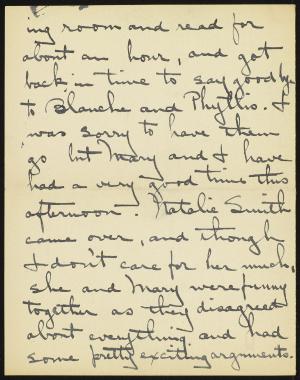 ing room and read for
about an hour, and got
back in time to say goodby
to Blanche and Phyllis. I
was sorry to have them
go but Mary and I have
had a very good time this
afternoon. Natalie Smith
came over, and though
I don't care for her much,
she and Mary were funny
together as they disagreed
about everything and had
some pretty exciting arguments.